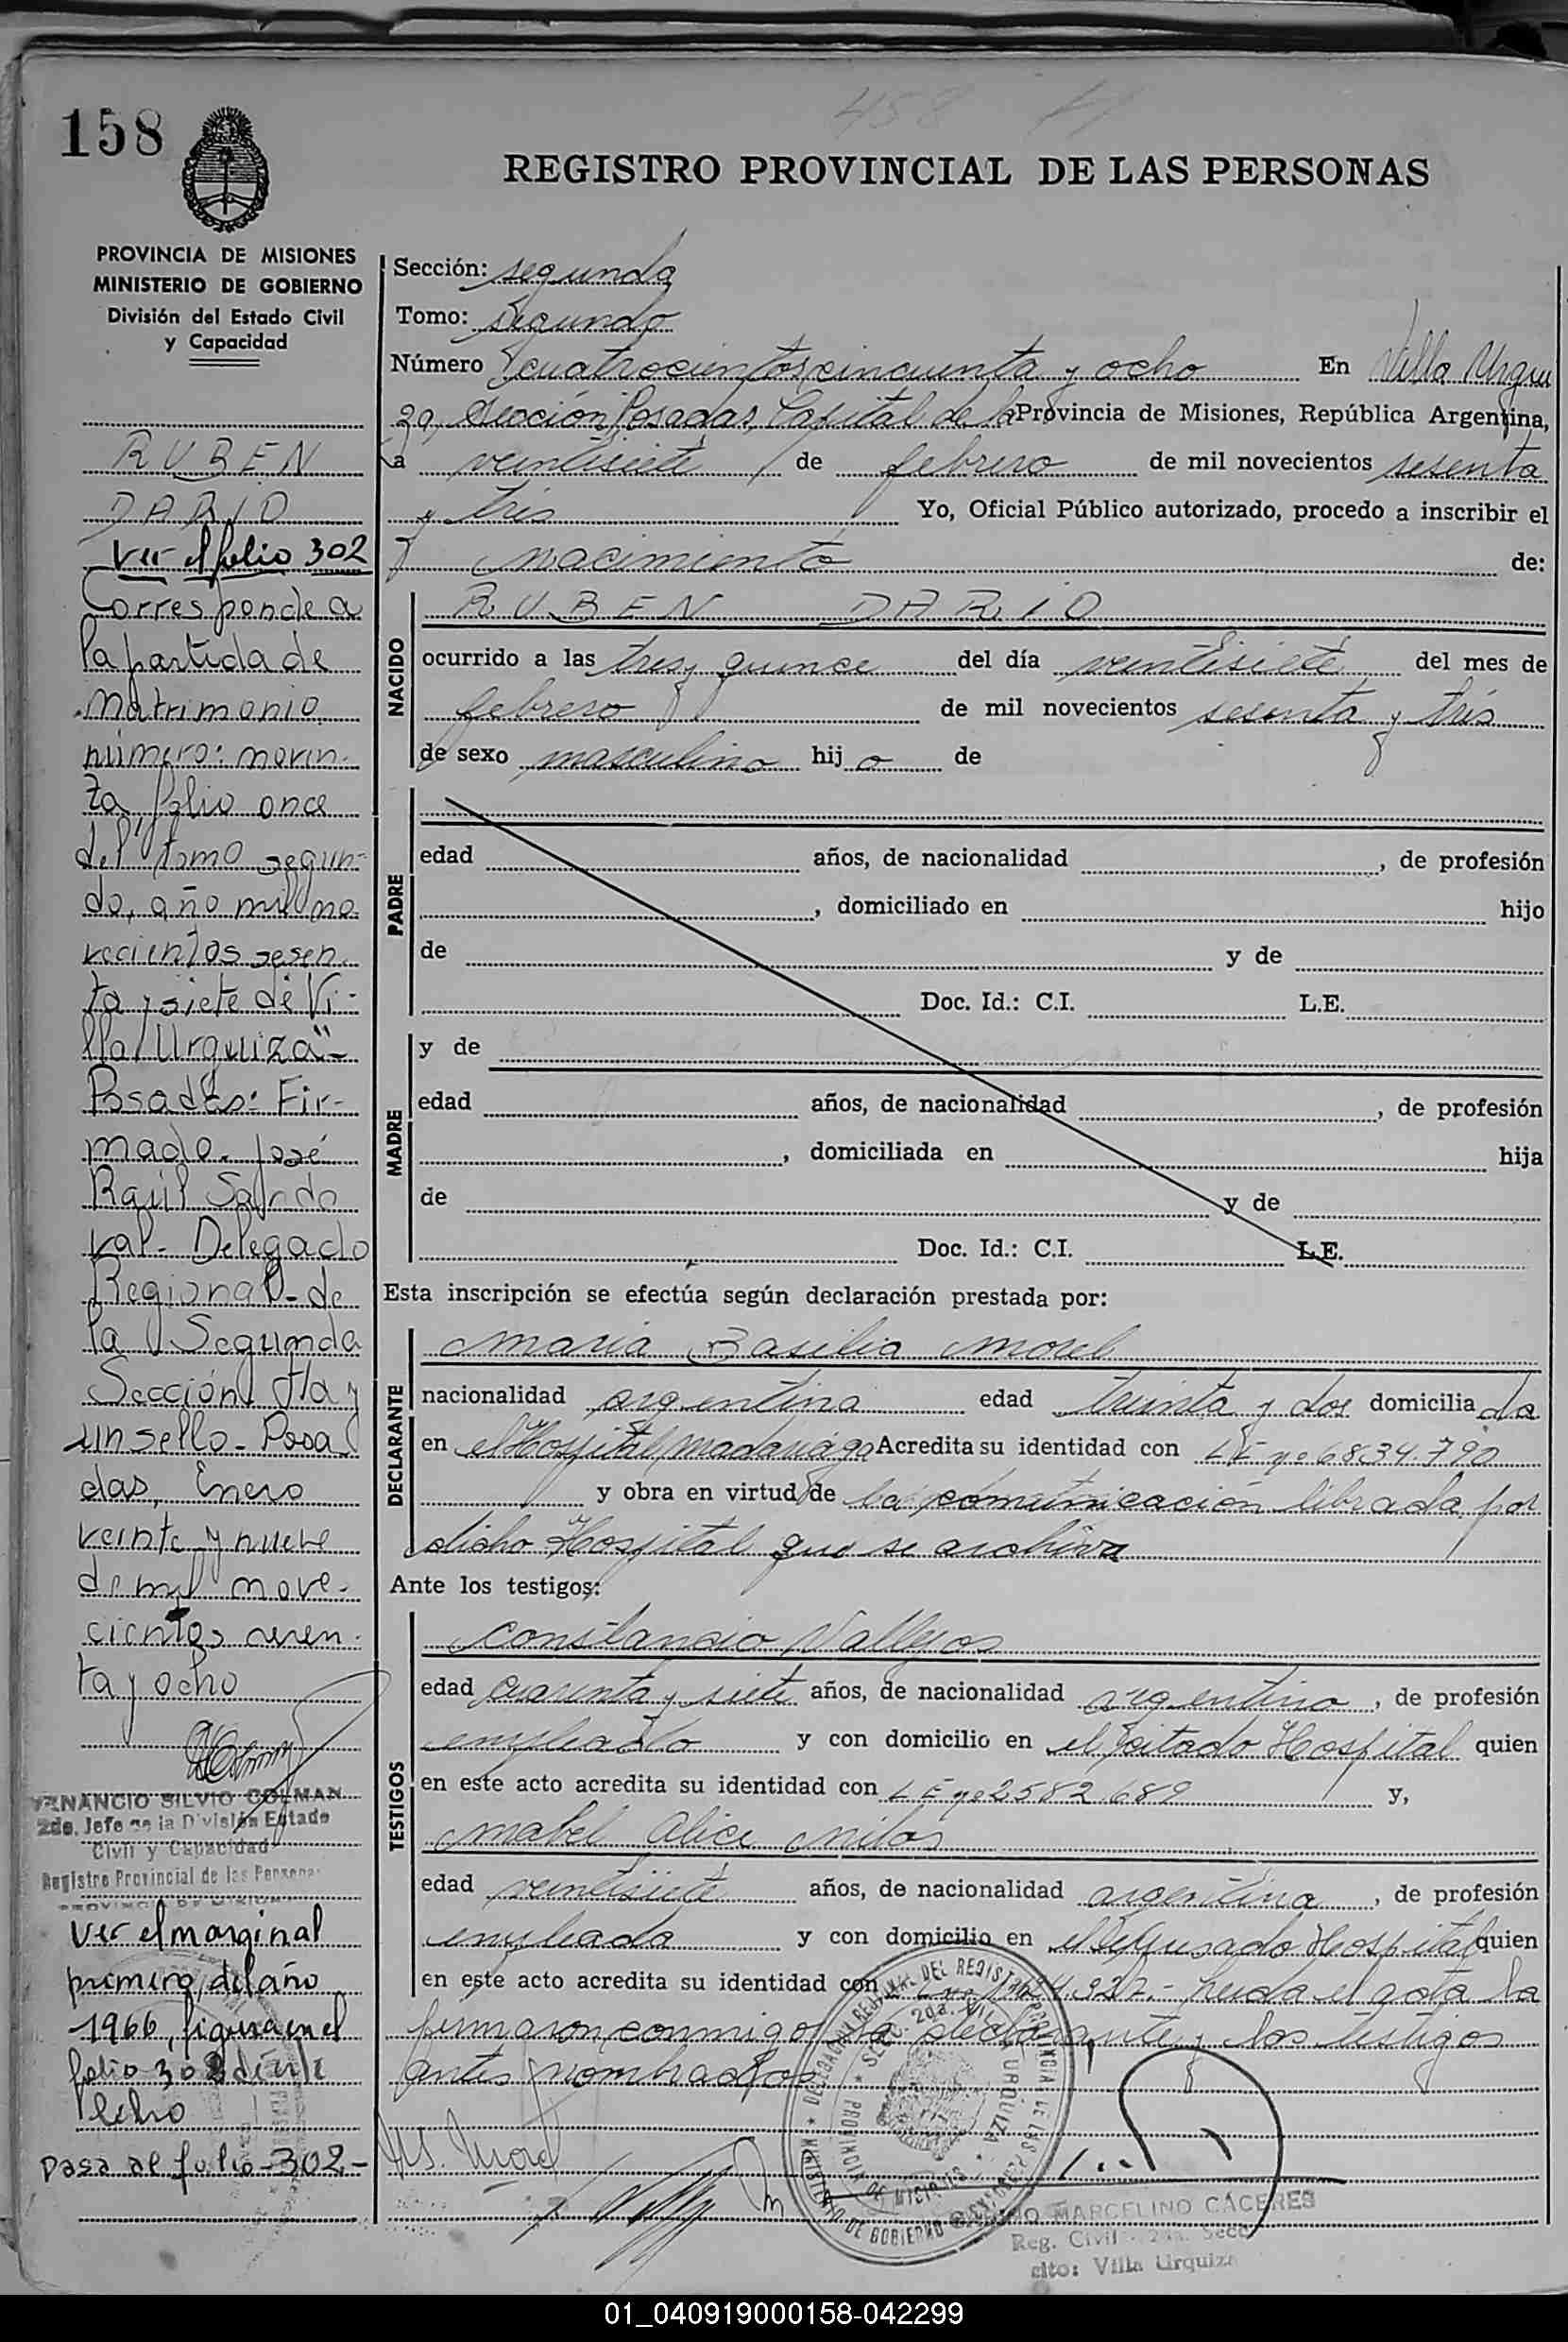 458
158
REGISTRO PROVINCIAL DE LAS PERSONAS
PROVINCIA DE MISIONES
MINISTERIO DE GOBIERNO
División del Estado Civil
y Capacidad
RUBEN
DARIO
Ver el folio 302
Corresponde a
la partida de
matrimonio
número: noven-
ta folio once
del tomo segun-
do, año mil no-
vecientos sesen-
ta y siete de Vi-
lla Urquiza"-
Posadas: Fir-
mado. José
Raúl Sando
val - Delegado
Regional - de
la Segunda
Sección Hay
un sello - Posa
das, Enero
veinte y nueve
de mil nove-
cientos
ta y ocho
VENANCIO SILVIO COLMAN
2do. Jefe de la División Estado
Civil y Capacidad
Registro Provincial de las Personas
Ver el marginal
primero, del año
1966, figura en el
folio 302 de este
libro
pasa al folio - 302 -
Sección: segunda
Tomo: segundo
Número cuatrocientos cincuenta y ocho En Villa Urqui
za, Sección Posadas, Capital de la Provincia de Misiones, República Argentina,
a veintisiete de febrero de mil novecientos sesenta
y tres Yo, Oficial Público autorizado, procedo a inscribir el
nacimiento de:
NACIDO
RUBEN DARIO
ocurrido a las tres y quince del día veintisiete del mes de
febrero de mil novecientos sesenta y tres
de sexo masculino hijo de
PADRE
edad años, de nacionalidad , de profesión
, domiciliado en hijo
de y de
Doc. Id.: C.I. L.E.
MADRE
y de
edad años, de nacionalidad , de profesión
, domiciliada en hija
de y de
Doc. Id.: C.I. L.E.
Esta inscripción se efectúa según declaración prestada por:
DECLARANTE
Maria Basilia Morel
nacionalidad argentina edad treinta y dos domiciliada
en el Hospital Madariaga Acredita su identidad con L E nº 6834.790
y obra en virtud de la comunicación librada por
dicho Hospital que se archiva
Ante los testigos:
TESTIGOS
Constancio Vallejos
edad cuarenta y siete años, de nacionalidad argentino, de profesión
empleado y con domicilio en el citado Hospital quien
en este acto acredita su identidad con L E nº 2582.689 y,
Mabel Alice
edad veintisiete años, de nacionalidad argentina, de profesión
empleada y con domicilio en el Hospital quien
en este acto acredita su identidad con leida el acta la
firmaron conmigo la declarante y los testigos
antes nombrados
Ms. Morel
DELEGACION REGIONAL DEL REGISTRO PROVINCIAL DE LAS PERSONAS
MINISTERIO DE GOBIERNO
PROVINCIA DE MISIONES
MARCELINO CACERES
Reg. Civil 2da. Secc
sito: Villa Urquiza
01_040919000158-042299